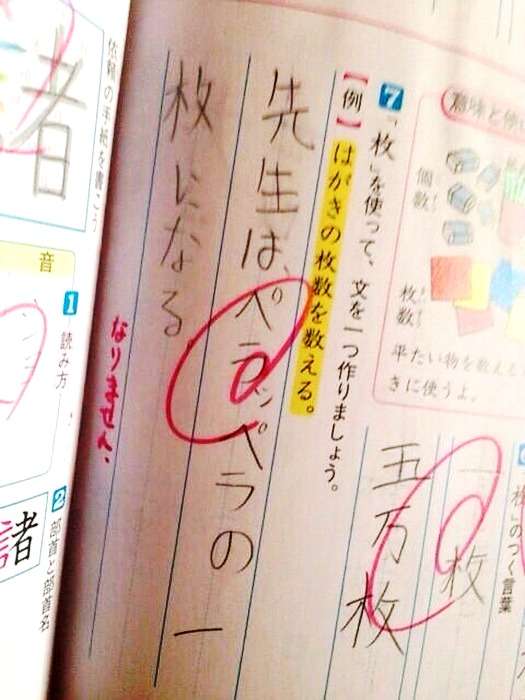 意味と使
個数
枚数
平たい物を数える
きに使うよ。
のつく言葉
一枚
五万枚
7 「枚」を使って、文を一つ作りましょう。
【例】はがきの枚数を数える。
先生は、ペラッペラの一
枚になる
なりません。
依頼の手紙を書こう
音
1 読み方
2 部首と部首名
諸